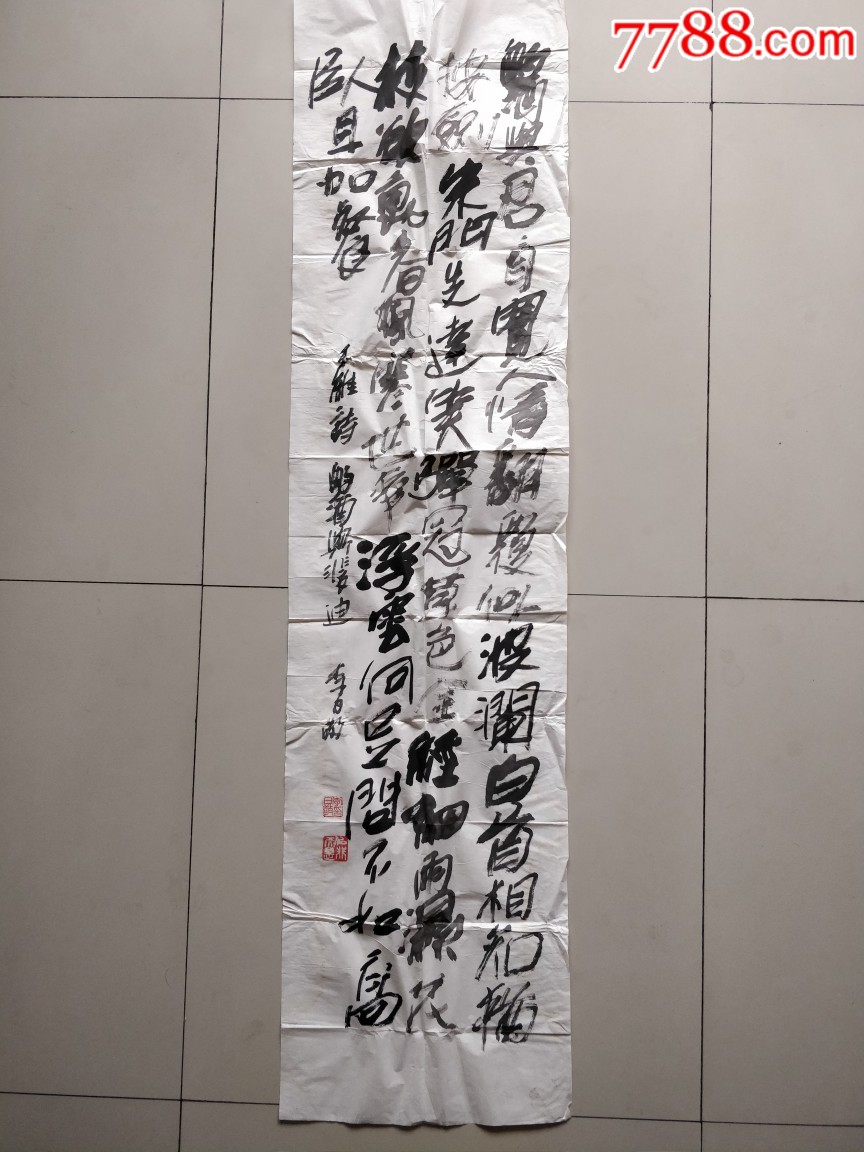 7788.com
酌酒與君自寬人情翻覆似波瀾白首相知猶
按劍朱門先達笑彈冠草色全經細雨濕花
枝欲動春風寒世事浮雲何足問不如高
臥且加餐
王維詩 酌酒與裴迪 李